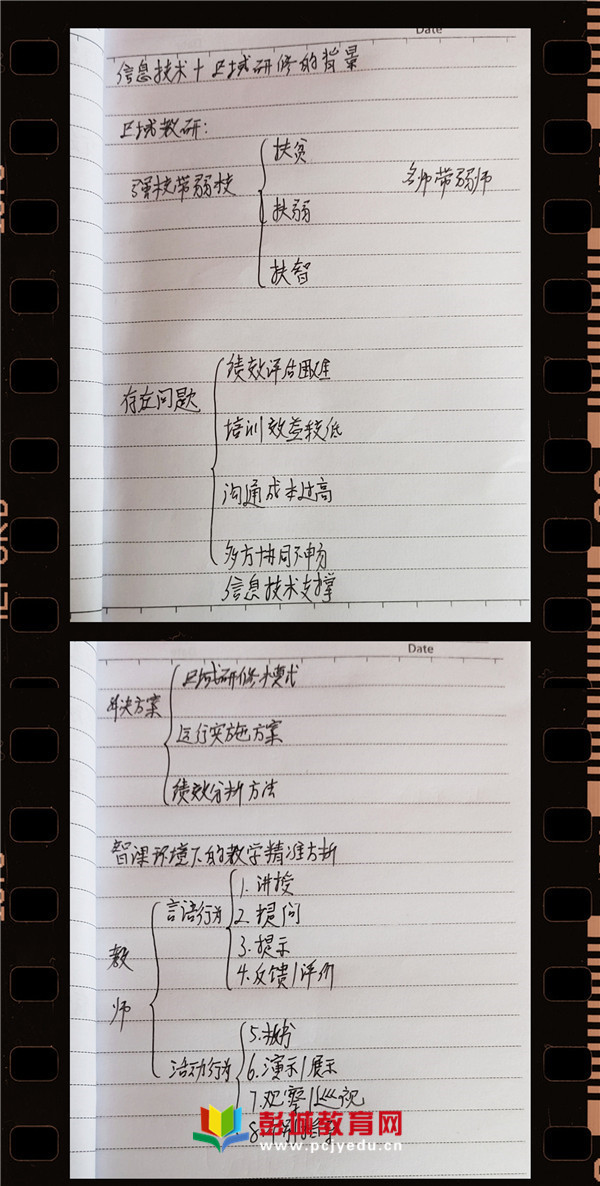 Date
信息技术+区域研修的背景
区域教研:
强校带弱校
扶贫
扶弱
扶智
名师带弱师
存在问题
绩效评估困难
培训效益较低
沟通成本过高
多方协同不畅
信息技术支撑
Date
解决方案
区域研修模式
运行实施方案
绩效分析方法
智课环境下的教学精准分析
教师
言语行为
1.讲授
2.提问
3.提示
4.反馈/评价
活动行为
5.板书
6.演示/展示
7.观察/巡视
8.
彭城教育网
www.pcjyedu.cn